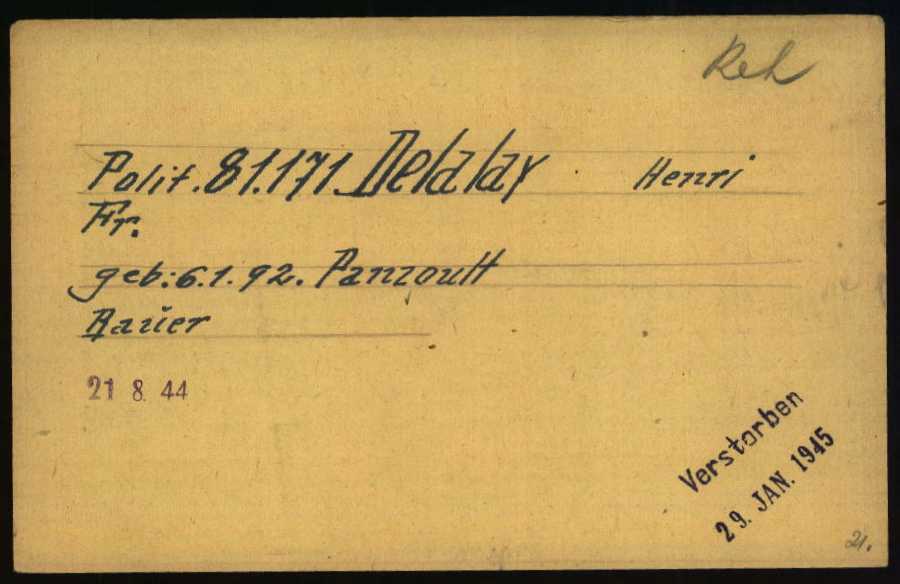 Reh
Polit. 81.171. Delalay Henri
Fr.
geb: 6.1.92. Panzoult
Bauer
21 8. 44
Verstorben
29. JAN. 1945
21.